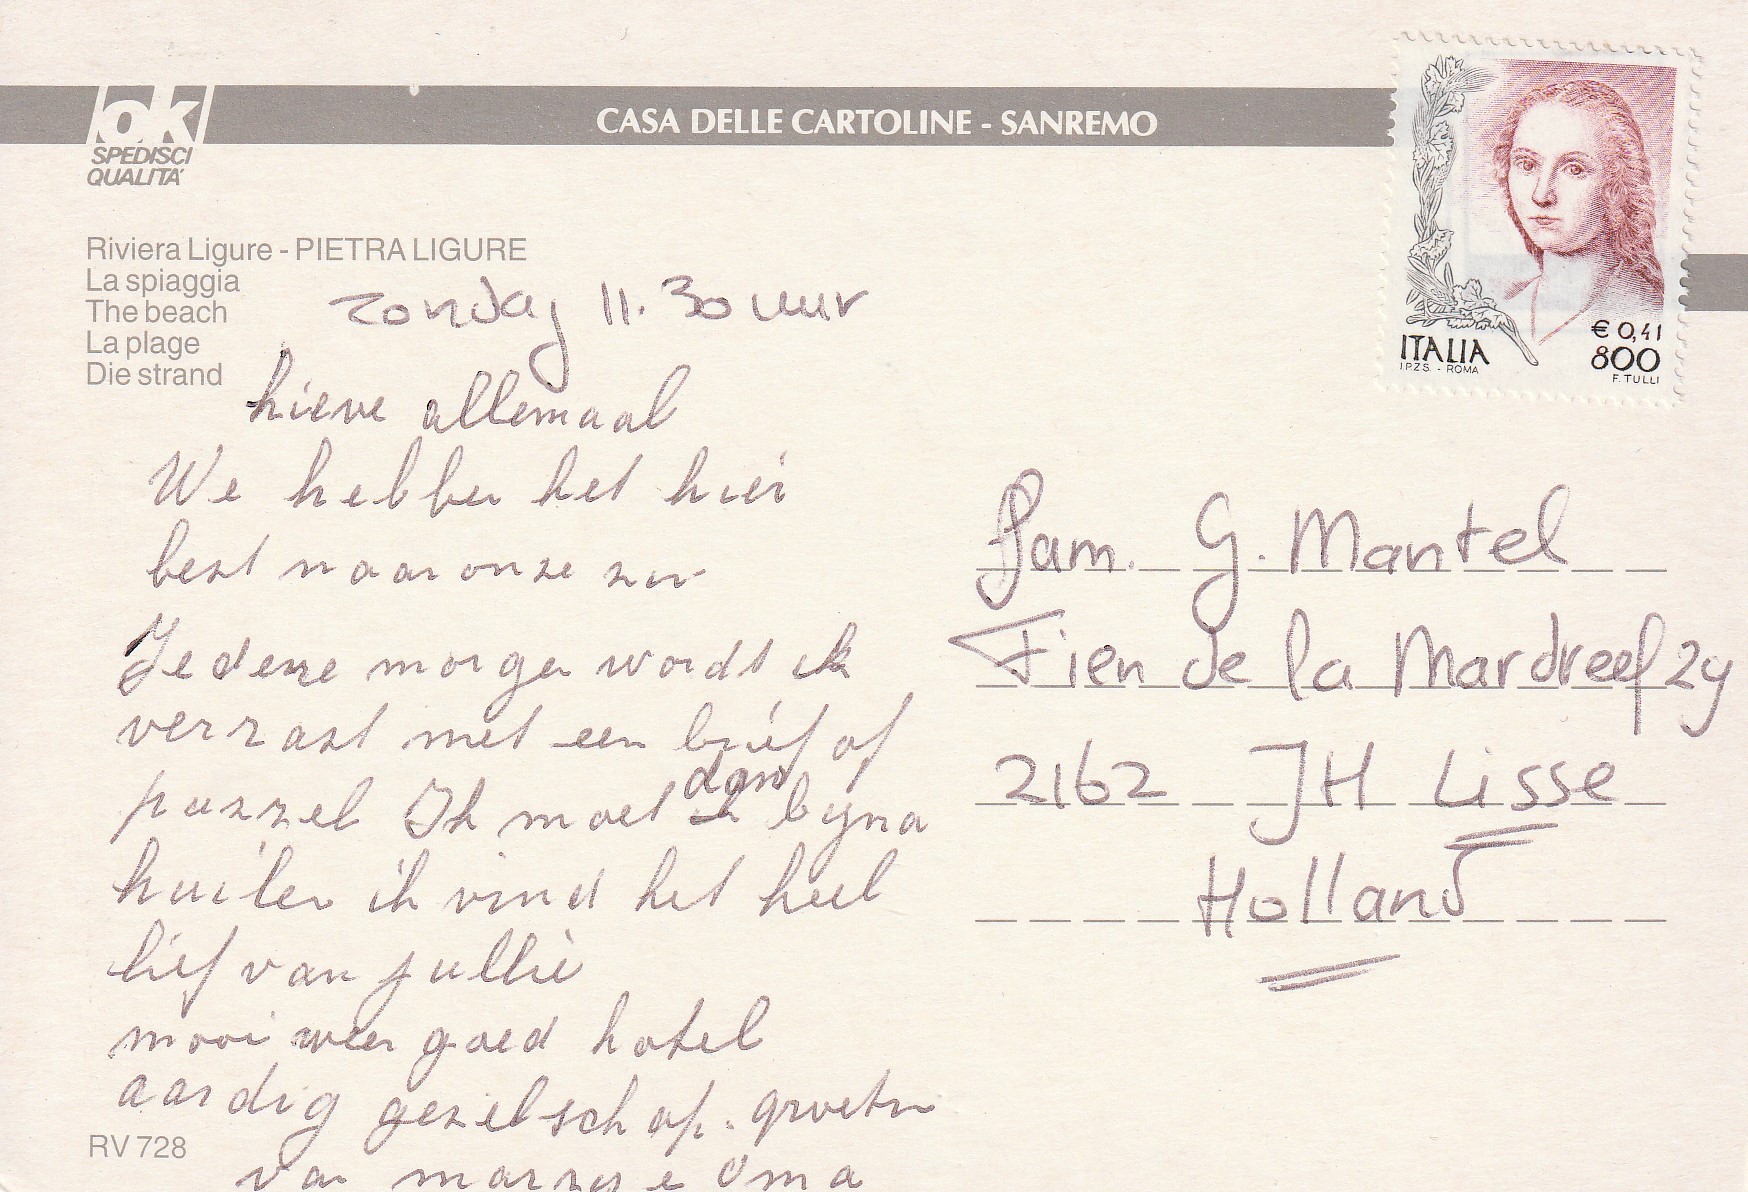 ok
SPEDISCI
QUALITÀ
CASA DELLE CARTOLINE - SANREMO
Riviera Ligure - PIETRA LIGURE
La spiaggia
The beach
La plage
Die strand
€ 0,41
800
ITALIA
I.P.Z.S. - ROMA
F. TULLI
zondag 11.30 uur
Lieve allemaal
We hebben het hier
best naar onze zin
Iedere morgen wordt ik
verrast met een brief of
puzzel Ik moet dan bijna
huilen ik vind het heel
lief van jullie
mooi weer goed hotel
aardig gezelschap. groeten
van Oma
Fam. G. Mantel
Fien de la Mardreef 29
2162 JH Lisse
Holland
RV 728